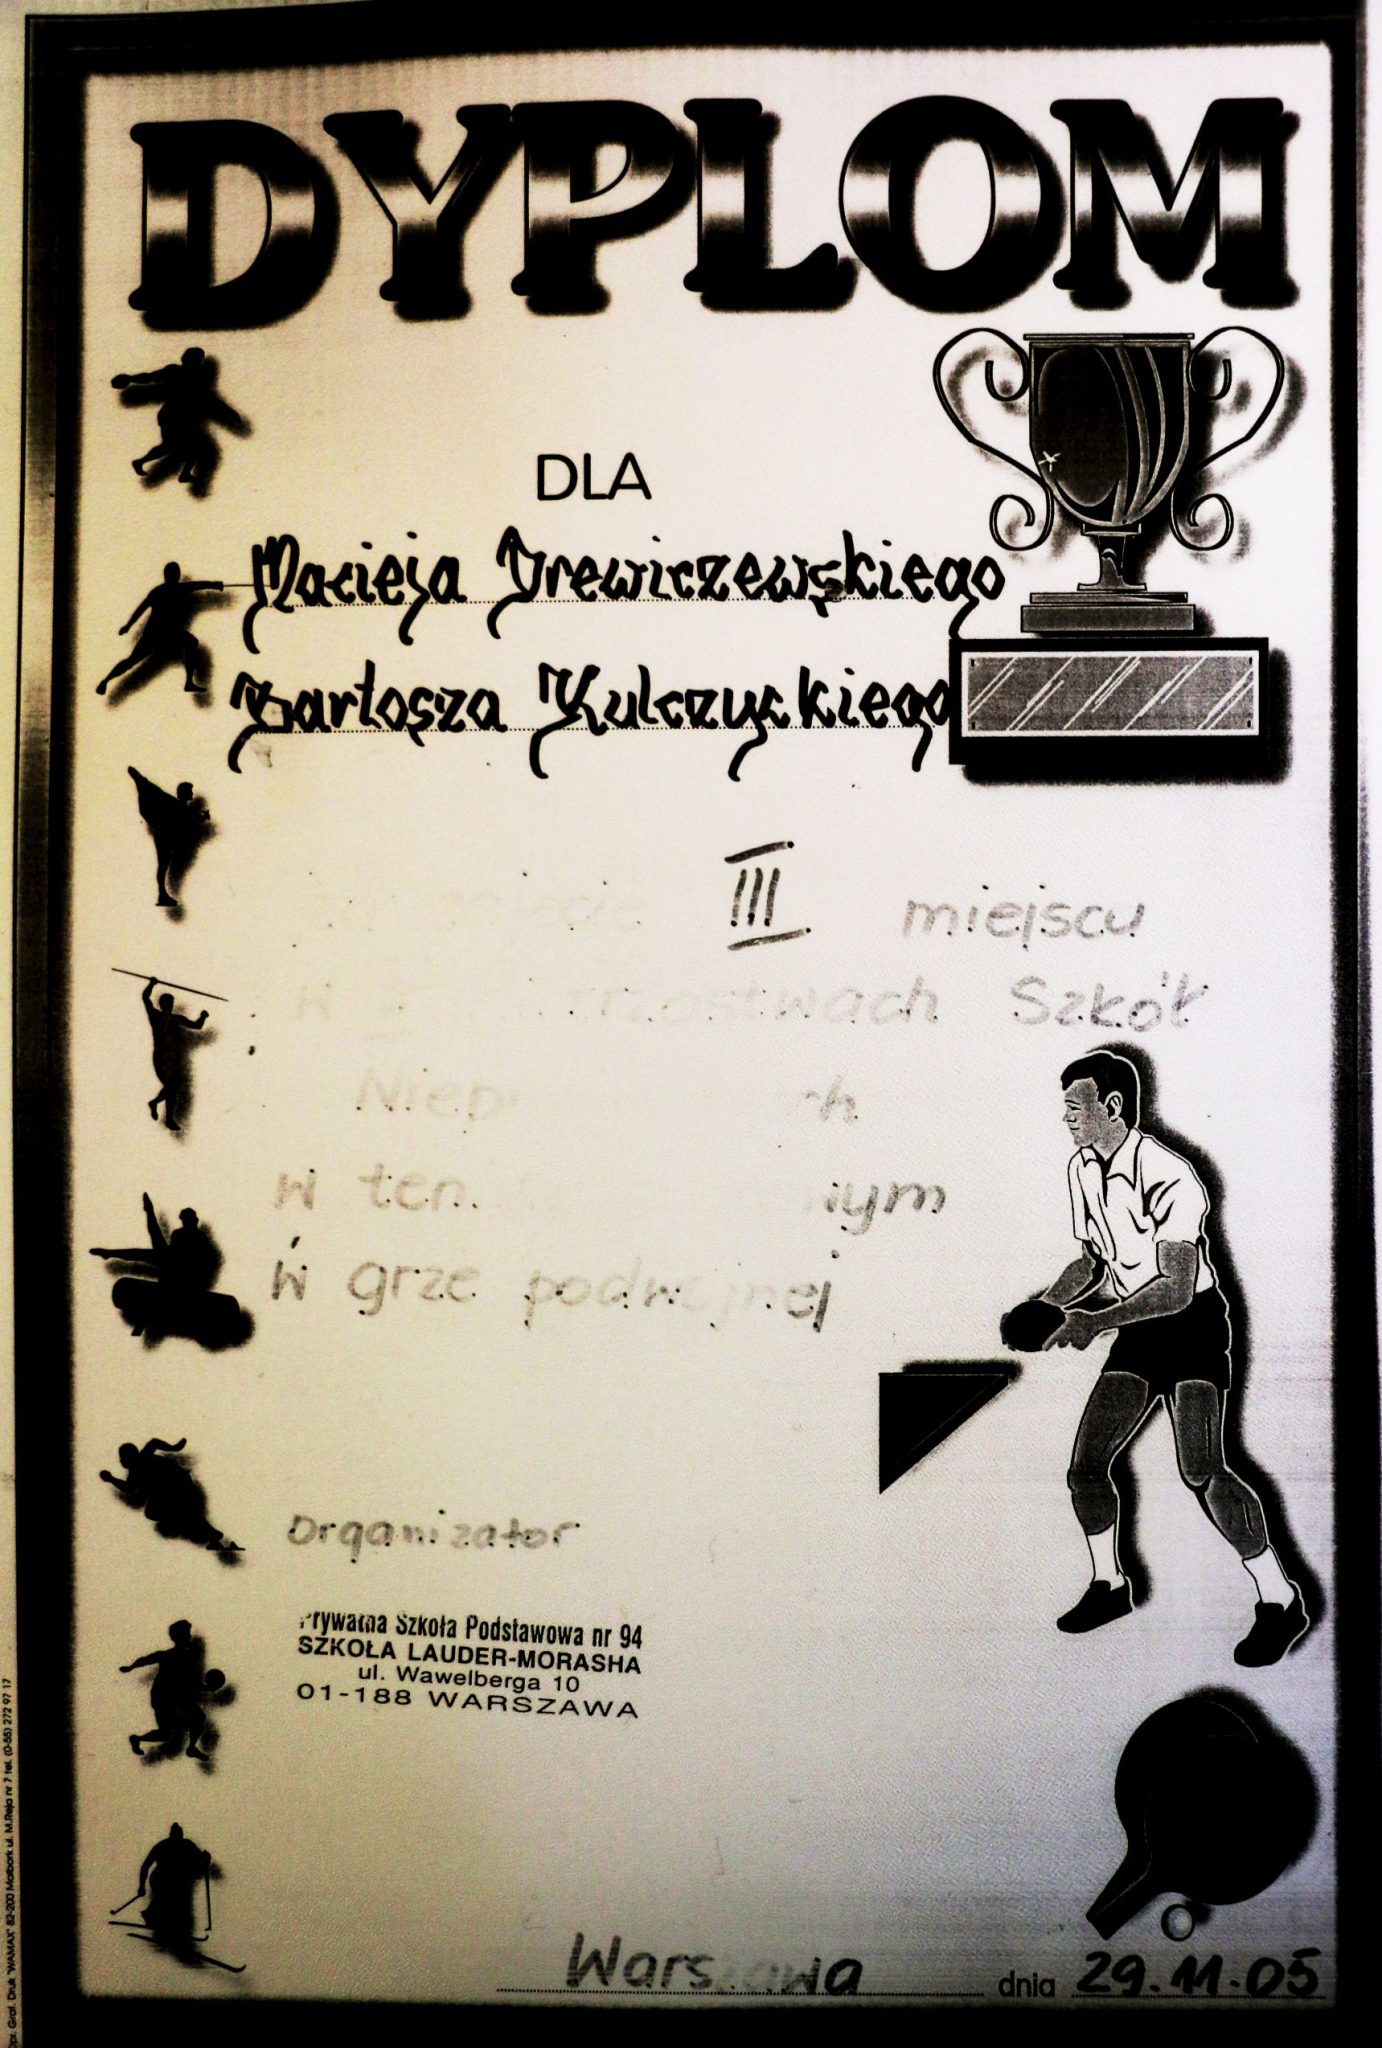 DYPLOM
DLA
Macieja Drewiczewskiego
Bartosza Kulczyckiego
III miejscu
w Szkół
w
w grze podwójnej
Organizator
Prywatna Szkoła Podstawowa nr 94
SZKOŁA LAUDER-MORASHA
ul. Wawelberga 10
01-188 WARSZAWA
Warszawa dnia 29.11.05
Druk "WAMAX" 82-200 Malbork ul. M.Reja nr 7 tel. (0-55) 272 97 17